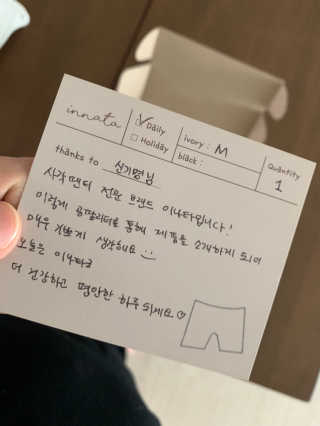 innata
✓ Daily
□ Holiday
ivory : M
black :
Quantity
1
thanks to 신기명님
사각팬티 전문 브랜드 이나타입니다!
이렇게 공팔리터를 통해 제품을 소개하게 되어
매우 기쁘게 생각해요 :)
오늘은 이나타로
더 건강하고 편안한 하루 되세요